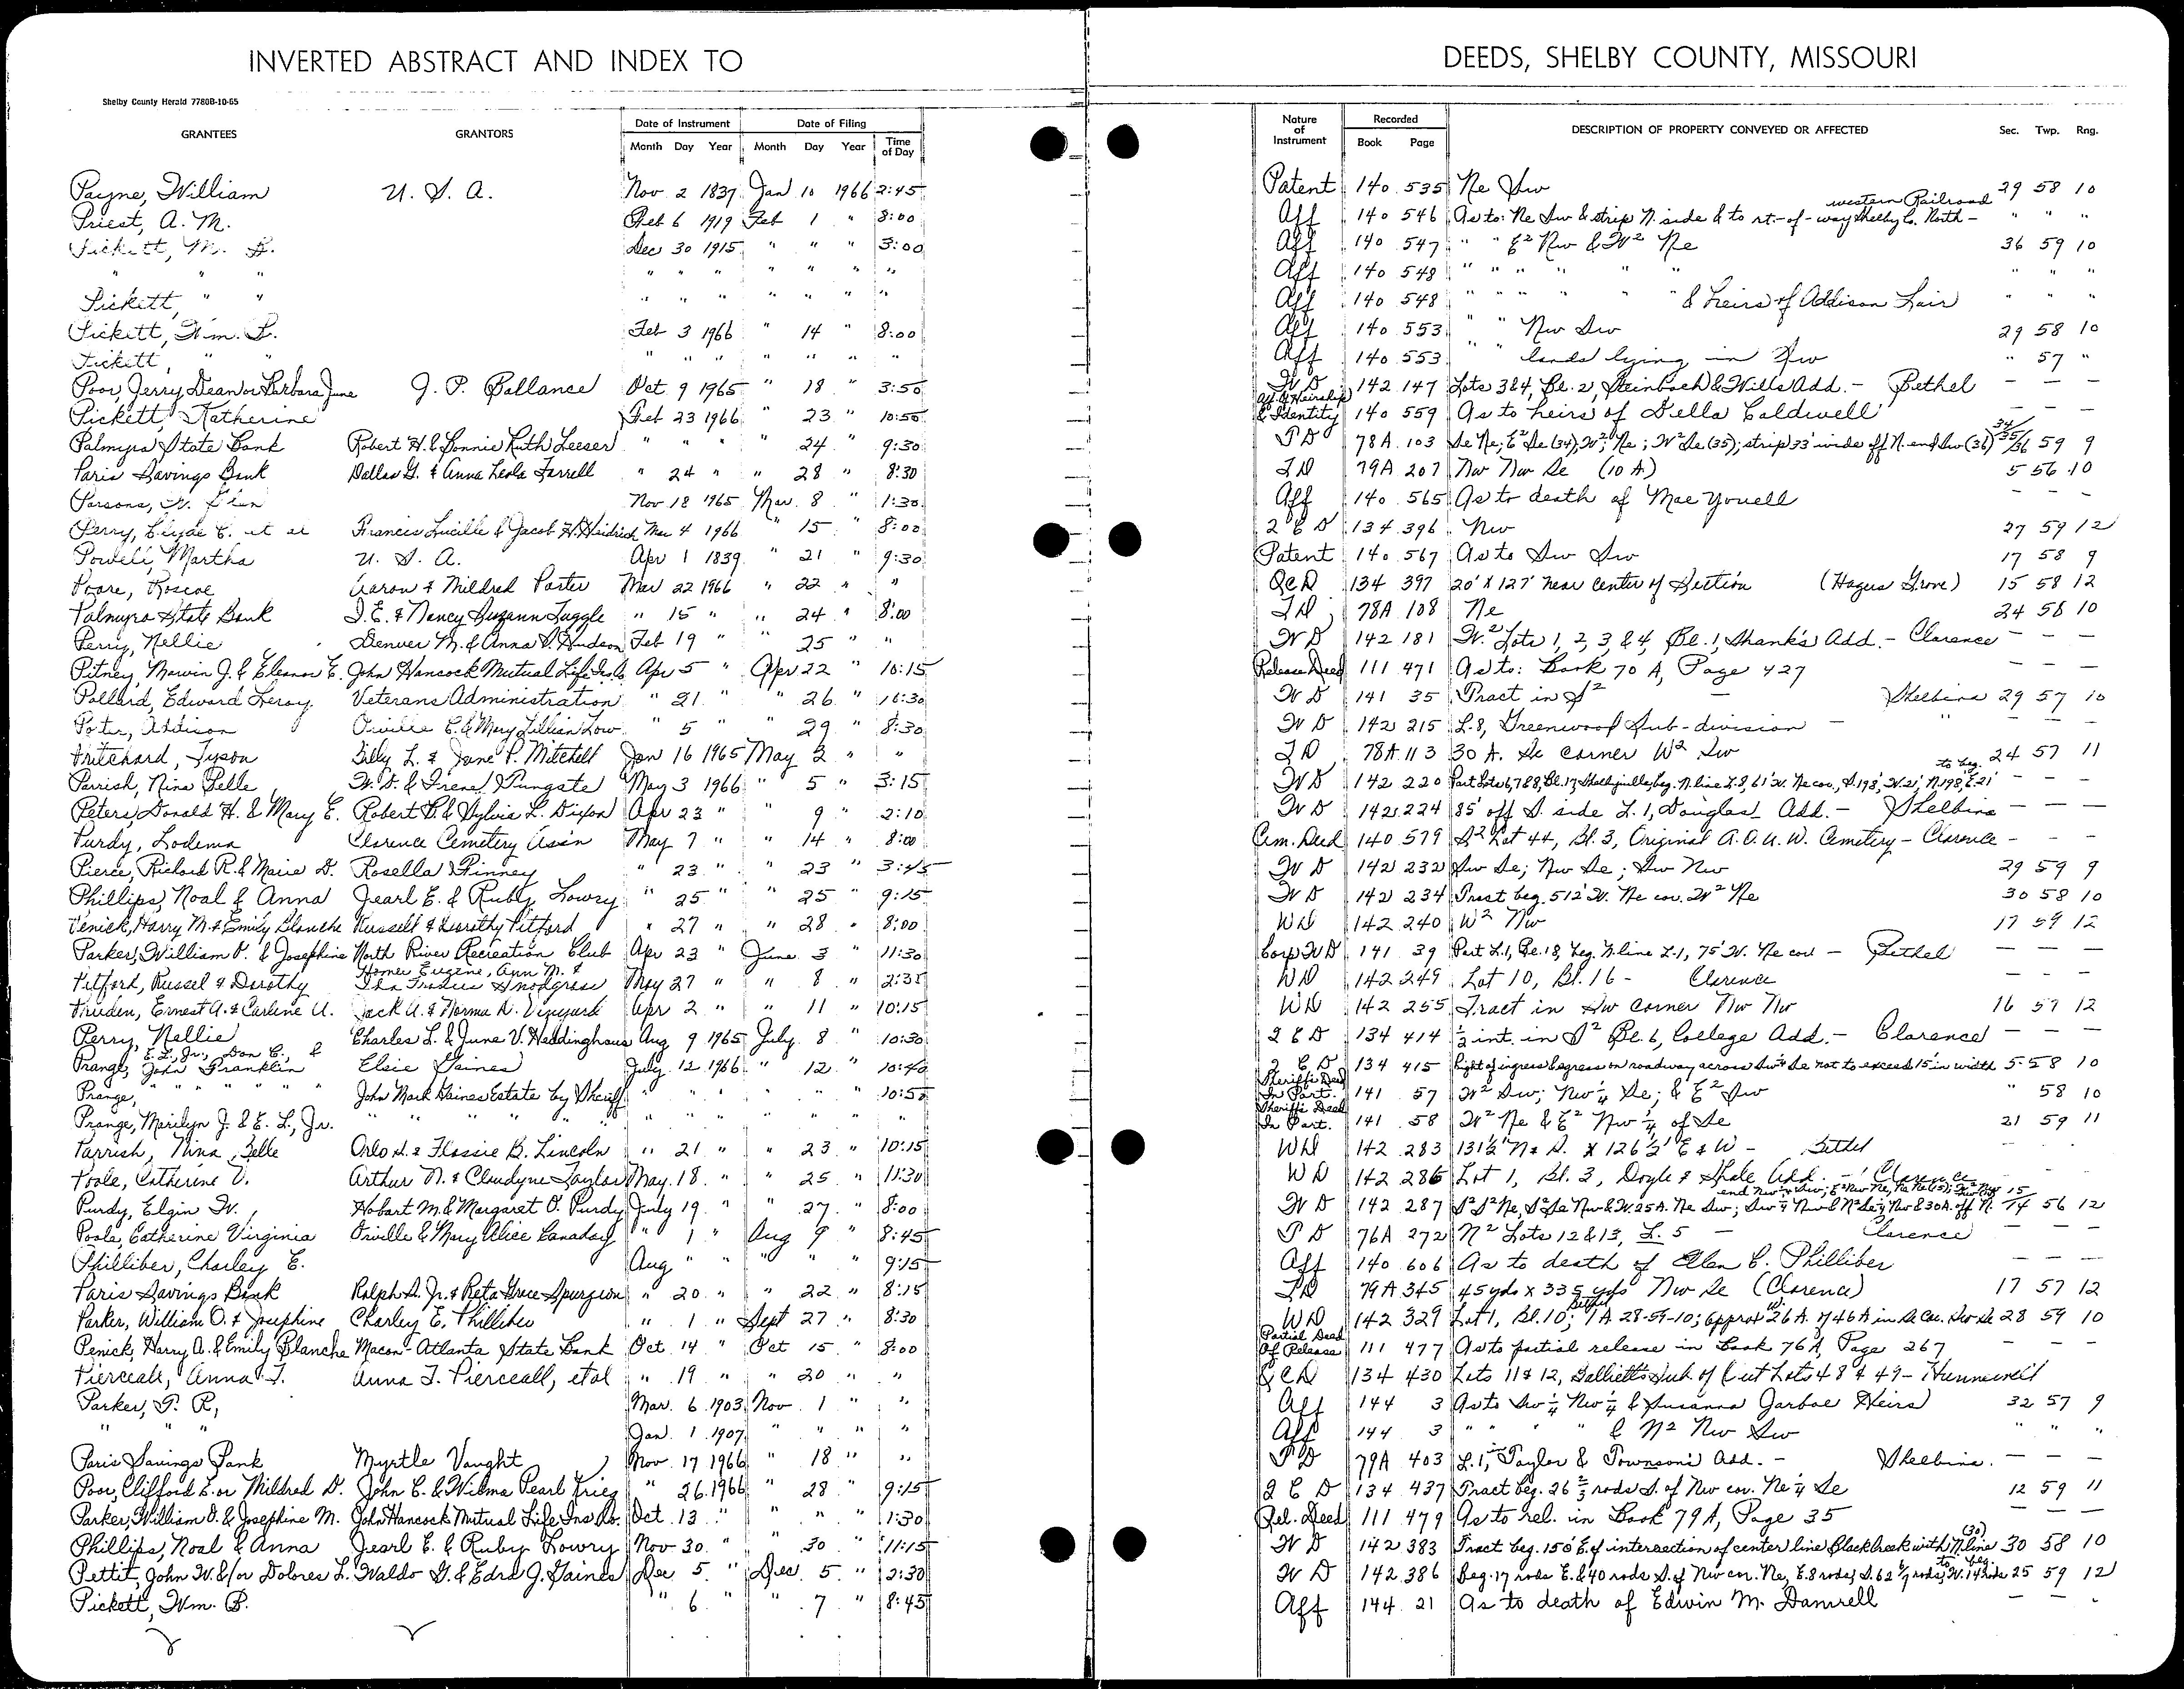 INVERTED ABSTRACT AND INDEX TO DEEDS, SHELBY COUNTY, MISSOURI
Shelby County Herald 7780B-10-65
GRANTEES GRANTORS Date of Instrument Month Day Year Date of Filing Month Day Year Time of Day Nature of Instrument Recorded Book Page DESCRIPTION OF PROPERTY CONVEYED OR AFFECTED Sec. Twp. Rng.
Payne, William U. S. A. Nov 2 1837 Jan 10 1966 2:45 Patent 140 535 Ne Sw 29 58 10
Priest, A. M. Feb 6 1919 Feb 1 " 8:00 Aff 140 546 As to: Ne Sw & strip N. side & to rt.-of-way Shelby Co. North-western Railroad " " "
Pickett, M. Dec 30 1915 " " " 3:00 Aff 140 547 " " E² Nw & W² Ne 36 59 10
" " " " " " " " " " Aff 140 548 " " " " " " " " "
Pickett, " " " " " " " " " Aff 140 548 " " " " " " & Heirs of Addison Lair " " "
Pickett, Wm. Feb 3 1966 " 14 " 8:00 Aff 140 553 " " Nw Sw 29 58 10
Pickett, " " " " " " " " " Aff 140 553 " " lands lying in Sw " 57 "
Poor, Jerry Dean or Barbara June J. P. Ballance Oct 9 1965 " 18 " 3:50 WD 142 147 Lots 3&4, Bl. 2, Steinbach & Wills Add. - Bethel — — —
Pickett, Katherine Feb 23 1966 " 23 " 10:50 Aff of Heirship & Identity 140 559 As to heirs of Della Caldwell — — —
Palmyra State Bank Robert H. & Bonnie Ruth Leeser " " " " 24 " 9:30 TD 78A 103 Se Ne; E² Se (34); W² Ne; W² Se (35); strip 33' wide off N. end Sw (36) 34/35/36 59 9
Paris Savings Bank Dallas G. & Anna Leola Farrell " 24 " " 28 " 8:30 TD 79A 207 Nw Nw Se (10 A) 5 56 10
Parsons, Nov 18 1965 Mar. 8 " 1:30 Aff 140 565 As to death of Mae Youell — — —
Perry, Clyde C. et al Francis Lucille & Jacob H. Heidrich Mar 4 1966 " 15 " 8:00 QCD 134 396 Nw 27 59 12
Powell, Martha U. S. A. Apr 1 1839 " 21 " 9:30 Patent 140 567 As to Sw Sw 17 58 9
Poore, Roscoe Aaron & Mildred Porter Mar 22 1966 " 22 " " QCD 134 397 20' X 127' near center of Section (Hagus Grove) 15 58 12
Palmyra State Bank & Nancy Suzann Tuggle " 15 " " 24 " 8:00 TD 78A 108 Ne 24 58 10
Perry, Nellie Denver M. & Anna Hudson Feb 19 " " 25 " " WD 142 181 W² Lots 1, 2, 3 & 4, Bl. 1, Shank's Add. - Clarence — — —
Pitney, Marvin J. & Eleanor E. John Hancock Mutual Life Ins Co. Apr 5 " Apr 22 " 10:15 Release Deed 111 471 As to: Book 70 A, Page 427 — — —
Pollard, Edward Leroy Veterans Administration " 21 " " 26 " 10:30 WD 141 35 Tract in S² — Shelbina 29 57 10
Poter, Addison Orville C. & Mary Lillian Low " 5 " 29 " 8:30 WD 142 215 L. 8, Greenwood Sub-division — " — — —
Pritchard, Tyson Billy L. & Jane P. Mitchell Jan 16 1965 May 2 " " TD 78A 113 30 A. Se corner W² Sw 24 57 11
Parrish, Nina Belle W. D. & Irene Pungate May 3 1966 " 5 " 3:15 WD 142 220 Part Lots 6,7&8, Bl. 17, Shelbyville, beg. N. line L. 8, 61' W. Ne cor., S. 198', W. 21', N. 198', E. 21' to beg. — — —
Peters, Donald H. & Mary E. Robert B. & Sylvia L. Dixon Apr 23 " " 9 " 2:10 WD 142 224 85' off S. side L. 1, Douglas Add. - Shelbina — — —
Purdy, Lodema Clarence Cemetery Ass'n May 7 " " 14 " 8:00 Cem. Deed 140 579 S² Lot 44, Bl. 3, Original A. O. U. W. Cemetery - Clarence — — —
Pierce, Richard R. & Marie D. Rosella Phinney " 23 " " 23 " 3:45 WD 142 232 Sw Se; Nw Se; Sw Nw 29 59 9
Phillips, Noal & Anna Jearl E. & Ruby Lowry " 25 " " 25 " 9:15 WD 142 234 Tract beg. 512' W. Ne cor. W² Ne 30 58 10
Penick, Harry M. & Emily Blanche Russell & Dorothy Pitford " 27 " " 28 " 8:00 WD 142 240 W² Nw 17 59 12
Parker, William O. & Josephine North River Recreation Club Apr 23 " June 3 " 11:30 Corp WD 141 39 Part L. 1, Bl. 18, beg. N. line L. 1, 75' W. Ne cor — Bethel — — —
Pitford, Russel & Dorothy Homer Eugene, Ann M. & Ila Frances Snodgrass May 27 " " 8 " 2:35 WD 142 249 Lot 10, Bl. 16 - Clarence — — —
Pruden, Ernest A. & Carline U. Jack A. & Norma R. Vineyard Apr 2 " " 11 " 10:15 WD 142 255 Tract in Sw corner Nw Nw 16 59 12
Perry, Nellie Charles L. & June V. Heddinghaus Aug 9 1965 July 8 " 10:30 QCD 134 414 ½ int. in S² Bl. 6, College Add. - Clarence — — —
Prange, E. L., Jr., Don C., & John Franklin Elsie Gaines July 12 1966 " 12 " 10:40 QCD 134 415 Right of ingress & egress on roadway across Sw¼ Se not to exceed 15' in width 5 58 10
Prange, " " " " " John Mark Gaines Estate by Sheriff " " " " " " 10:55 Sheriff's Deed In Part. 141 57 W² Sw; Nw¼ Se; & E² Sw " 58 10
Prange, Marilyn J. & E. L., Jr. " " " " " " " " " " " " Sheriff's Deed In Part. 141 58 W² Ne & E² Nw¼ of Se 21 59 11
Parrish, Nina Belle Orlo D. & Flossie B. Lincoln " 21 " " 23 " 10:15 WD 142 283 131½' N & S. X 126½' E & W - Bethel — — —
Poole, Catherine V. Arthur N. & Claudyne Taylor May 18 " " 25 " 11:30 WD 142 286 Lot 1, Bl. 3, Doyle & Shale Add. - Clarence — — —
Purdy, Elgin W. Hobart M. & Margaret O. Purdy July 19 " " 27 " 8:00 WD 142 287 56 12
Poole, Catherine Virginia Orville & Mary Alice Canaday " 1 " Aug 9 " 8:45 TD 76A 272 N² Lots 12 & 13, L. 5 — Clarence — —
Philliber, Charley E. Aug " " " " " 9:15 Aff 140 606 As to death of Ellen C. Philliber — — —
Paris Savings Bank Ralph D. Jr. & Reta Grace Spurgeon " 20 " " 22 " 8:15 TD 79A 345 45 yds x 335 yds Nw Se (Clarence) 17 57 12
Parker, William O. & Josephine Charley E. Philliber " 1 " Sept 27 " 8:30 WD 142 329 Lot 1, Bl. 10, Bethel; 1A 28-59-10; approx W. 26 A. of 46 A in Se Cor. Sw Se 28 59 10
Penick, Harry A. & Emily Blanche Macon-Atlanta State Bank Oct. 14 " Oct 15 " 8:00 Partial Deed Of Release 111 477 As to partial release in Book 76A, Page 267 — — —
Pierceall, Anna J. Anna J. Pierceall, et al " 19 " " 20 " " QCD 134 430 Lots 11 & 12, Gallietts Sub. of Out Lots 48 & 49 - Hunnewell
Parker, P. R. Mar. 6 1903 Nov. 1 " " Aff 144 3 As to Sw¼ Nw¼ & Susanna Garboe Heirs 32 57 9
" " " Jan. 1 1907 " " " " Aff 144 3 " " " " & N² Nw Sw " " "
Paris Savings Bank Myrtle Vaught Nov. 17 1966 " 18 " " TD 79A 403 L. 1, in Taylor & Townsons Add. - Shelbina. — — —
Poor, Clifford E. or Mildred D. John C. & Wilma Pearl Fries " 26 1966 " 28 " 9:15 QCD 134 437 Tract beg. 26⅔ rods S. of Nw cor. Ne¼ Se 12 59 11
Parker, William O. & Josephine M. John Hancock Mutual Life Ins. Co. Oct. 13 " " " " 1:30 Rel. Deed 111 479 As to rel. in Book 79A, Page 35 — —
Phillips, Noal & Anna Jearl E. & Ruby Lowry Nov 30 " " 30 " 11:15 WD 142 383 Tract beg. 150' E. of intersection of center line Black Creek with N. line (30) 30 58 10
Pettit, John W. &/or Dolores L. Waldo G. & Edra J. Gaines Dec 5 " Dec. 5 " 2:30 WD 142 386 Beg. 17 rods E. & 40 rods S. of Nw cor. Ne, E. 8 rods, S. 62 6/7 rods, W. 14 rods to beg. 25 59 12
Pickett, Wm. B. " 6 " " 7 " 8:45 Aff 144 21 As to death of Edwin M. Damrell — — -